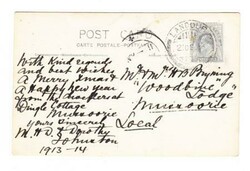 POST CARD
CARTE POSTALE
With kind regards
and best wishes
A Merry Xmas &
A Happy new year
from the
Dingle Cottage
Mussoorie
yours sincerely
M.H.D. & Dorothy
Johnston
1913-14
Mr & Mrs H B Bryning
"Woodbine"
Lodge
Mussoorie
Local